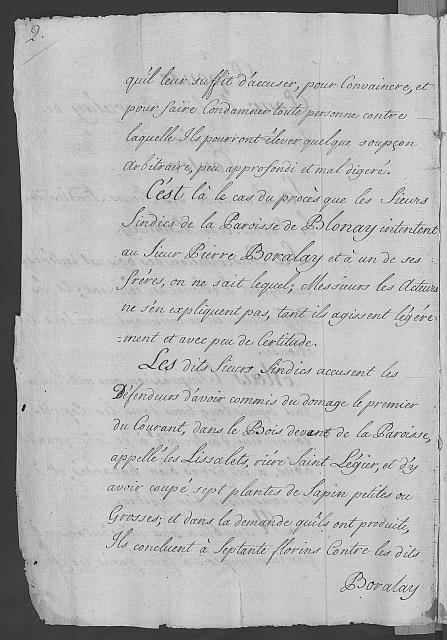 2.
qu'il leur suffit d'accuser, pour Convaincre, et
pour faire Condamner toute personne contre
laquelle Ils pourront élever quelque soupçon
arbitraire, peu approfondi et mal digeré.
C'est là le cas du procès que les Sieurs
Sindics de la Paroisse de Blonay intentent
au Sieur Pierre Boralay et à un de ses
fréres, on ne sait lequel; Messieurs les Acteurs
ne s'en expliquent pas, tant ils agissent légére-
-ment et avec peu de Certitude.
Les dits Sieurs Sindics accusent les
Défendeurs d'avoir commis du domage le premier
du Courant, dans le Bois devant de la Paroisse,
appellé les Lissalets, riére Saint Légier, et d'y
avoir coupé sept plantes de Sapin petites ou
Grosses; et dans la demande qu'ils ont produite,
Ils concluent à Septante florins Contre les dits
Boralay